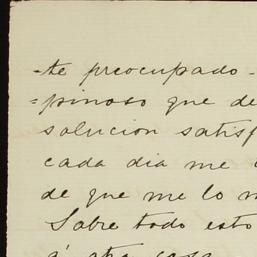 -te preocupado -
=pinoso que de
solucion satisf
cada dia me
de que me lo
Sobre todo esto
á otra cosa